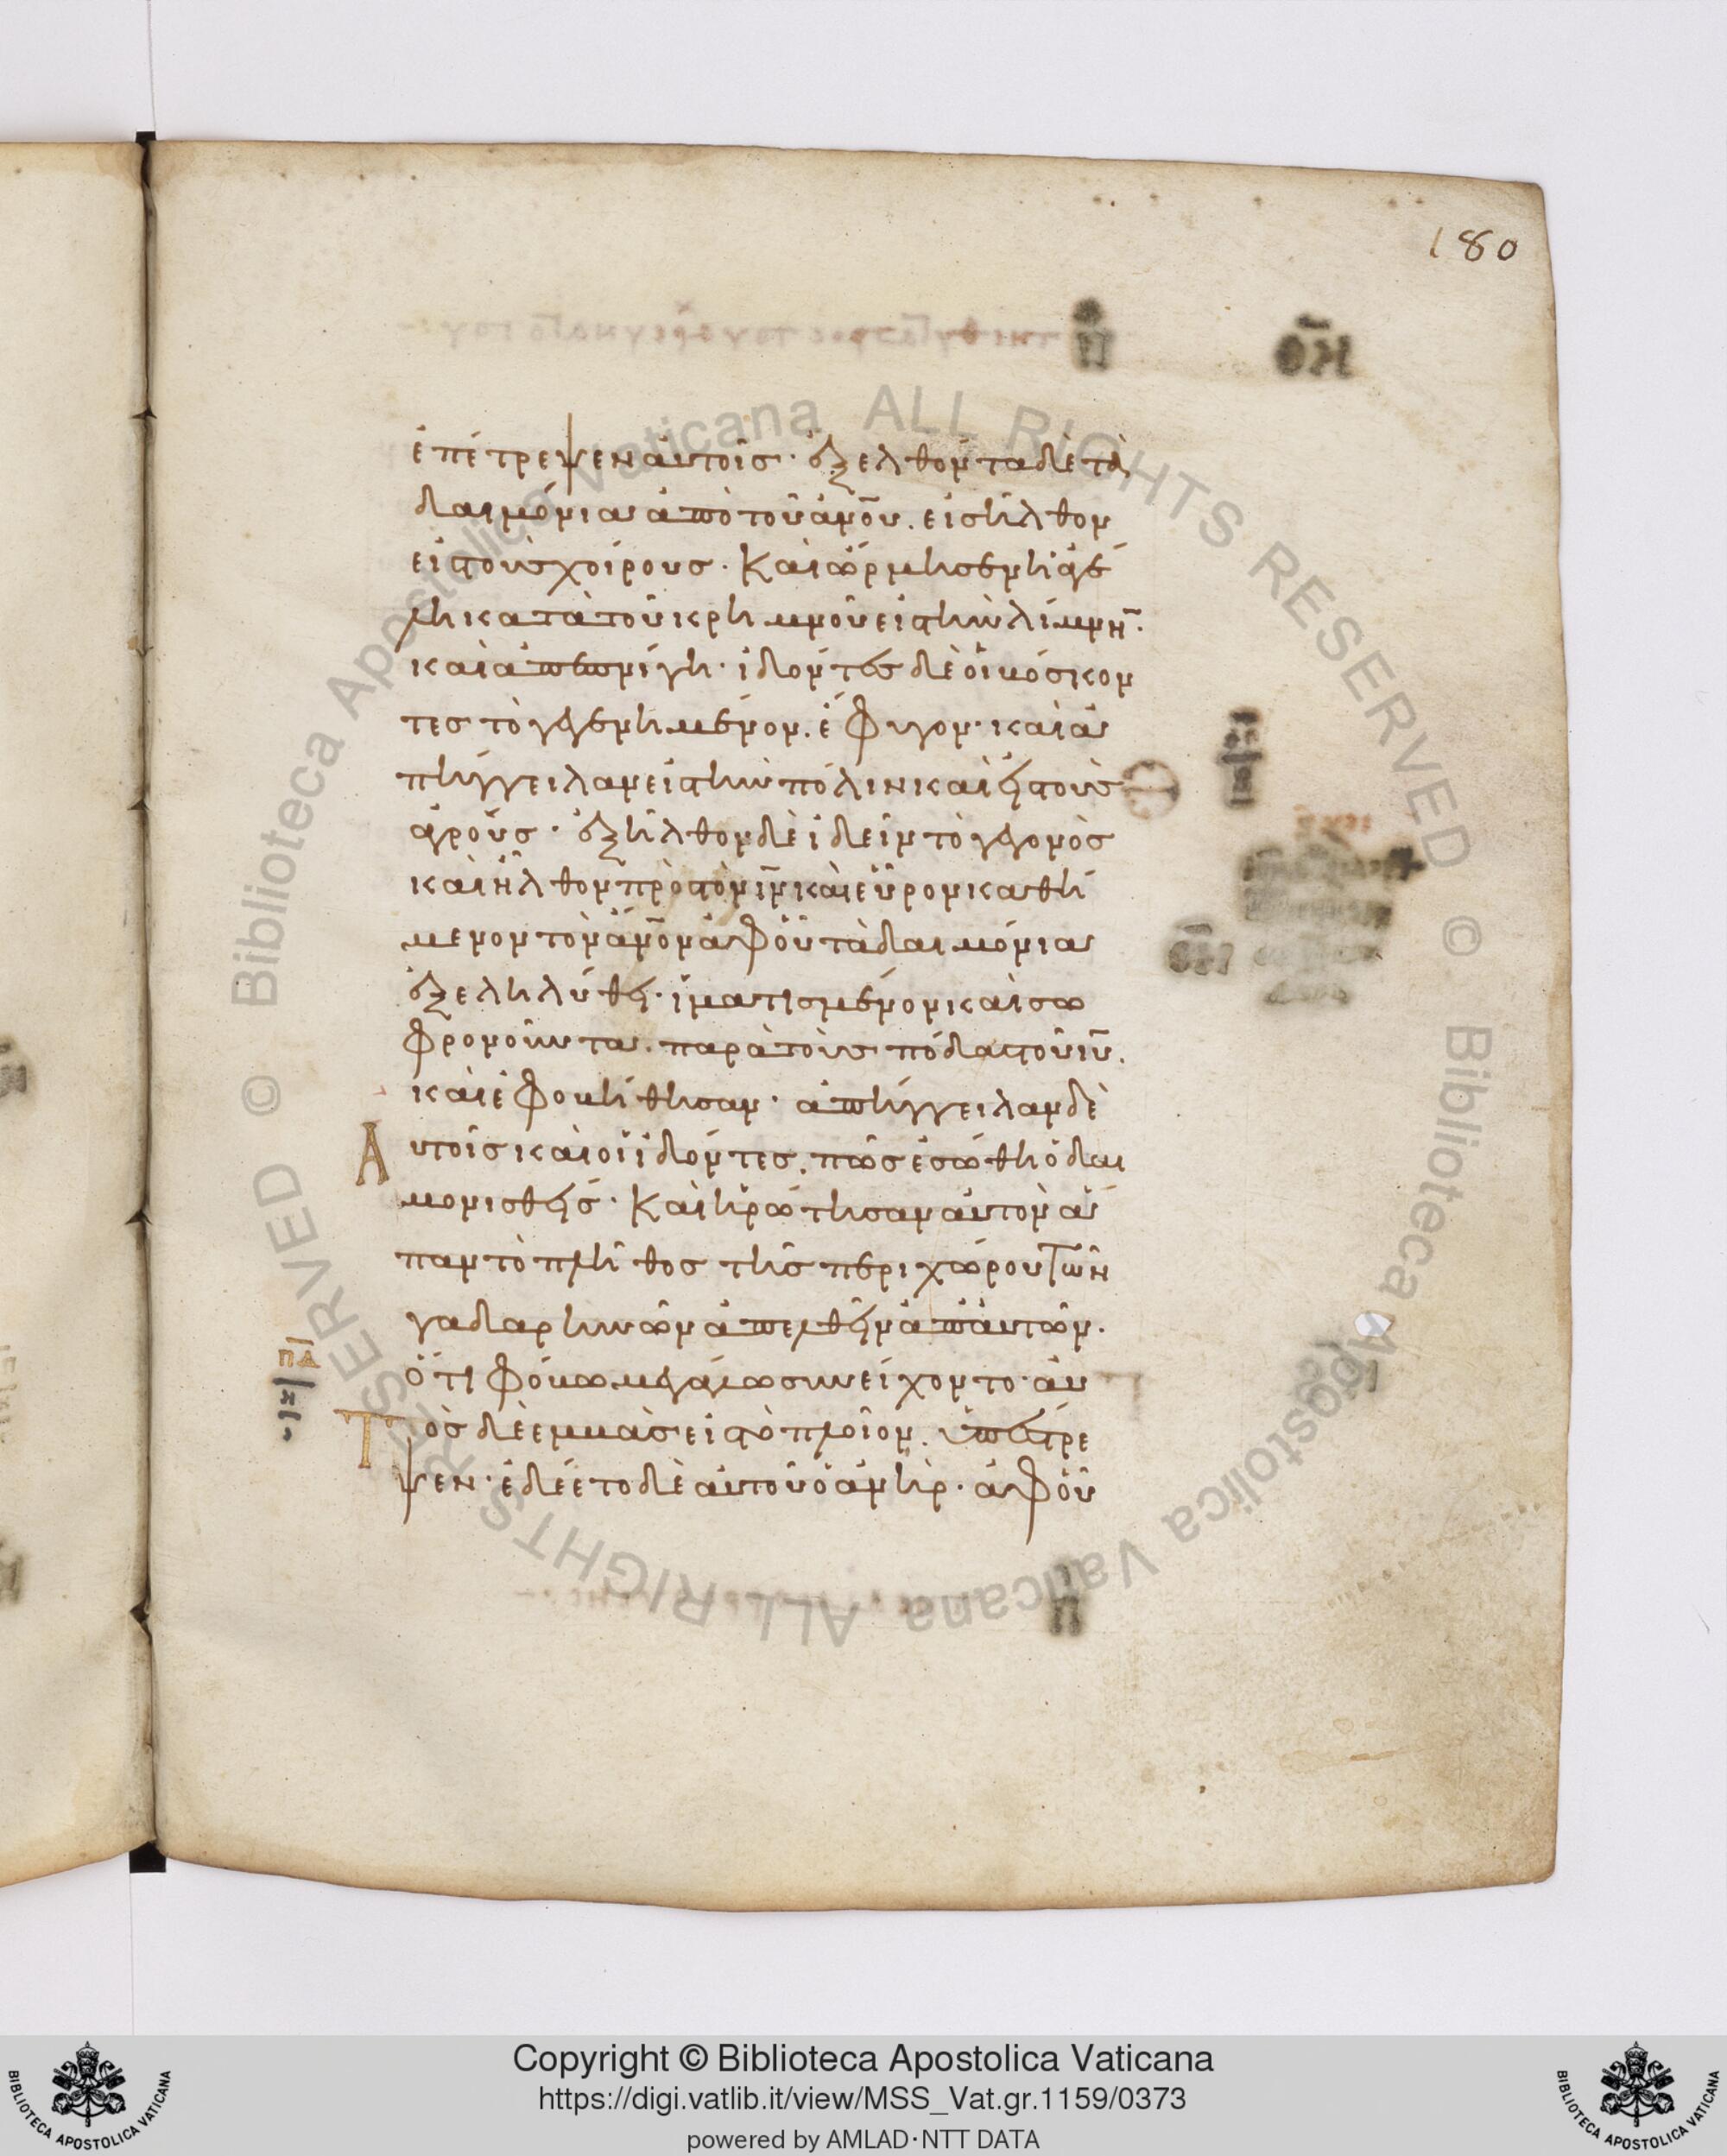 180
ἐπέτρεψεν αὐτοῖς· ἐξελθόντα δὲ τὰ
δαιμόνια ἀπὸ τοῦ ἀν̅ου̅. εἰσῆλθον
εἰς τοὺς χοίρους· Καὶ ὥρμησεν ἡ ἀγέ
λη κατὰ τοῦ κρημνοῦ εἰς τὴν λίμνην̅·
καὶ ἀπεπνίγη· ἰδόντες δὲ οἱ βόσκον
τες τὸ γεγενημένον. ἔφυγον· καὶ ἀ
πήγγειλαν εἰς τὴν πόλιν καὶ εἰς τοὺς
ἀγρούς· ἐξῆλθον δὲ ἰδεῖν τὸ γεγονὸς
καὶ ἦλθον πρὸς τὸν ι̅ν̅ καὶ εὗρον καθή
μενον τὸν ἄν̅ον̅ ἀφ' οὗ τὰ δαιμόνια
ἐξεληλύθει· ἱματισμένον καὶ σω
φρονοῦντα. παρὰ τοὺς πόδας τοῦ ι̅υ̅.
καὶ ἐφοβήθησαν· ἀπήγγειλαν δὲ
Αὐτοῖς καὶ οἱ ἰδόντες. πῶς ἐσώθη ὁ δαι
μονισθείς· Καὶ ἠρώτησαν αὐτὸν ἅ
παν τὸ πλῆθος τῆς περιχώρου τῶν
γαδαρηνῶν ἀπελθεῖν ἀπ' αὐτῶν·
ὅτι φόβω μεγάλω συνείχοντο· αὐ
πδ̅
Τὸς δὲ ἐμβὰς εἰς τὸ πλοῖον. ὑπέστρε
ψεν· ἐδέετο δὲ αὐτοῦ ὁ ἀνήρ· ἀφ' οὗ
© Biblioteca Apostolica Vaticana ALL RIGHTS RESERVED © Biblioteca Apostolica Vaticana ALL RIGHTS RESERVED
BIBLIOTECA APOSTOLICA VATICANA
Copyright © Biblioteca Apostolica Vaticana
https://digi.vatlib.it/view/MSS_Vat.gr.1159/0373
powered by AMLAD·NTT DATA
BIBLIOTECA APOSTOLICA VATICANA